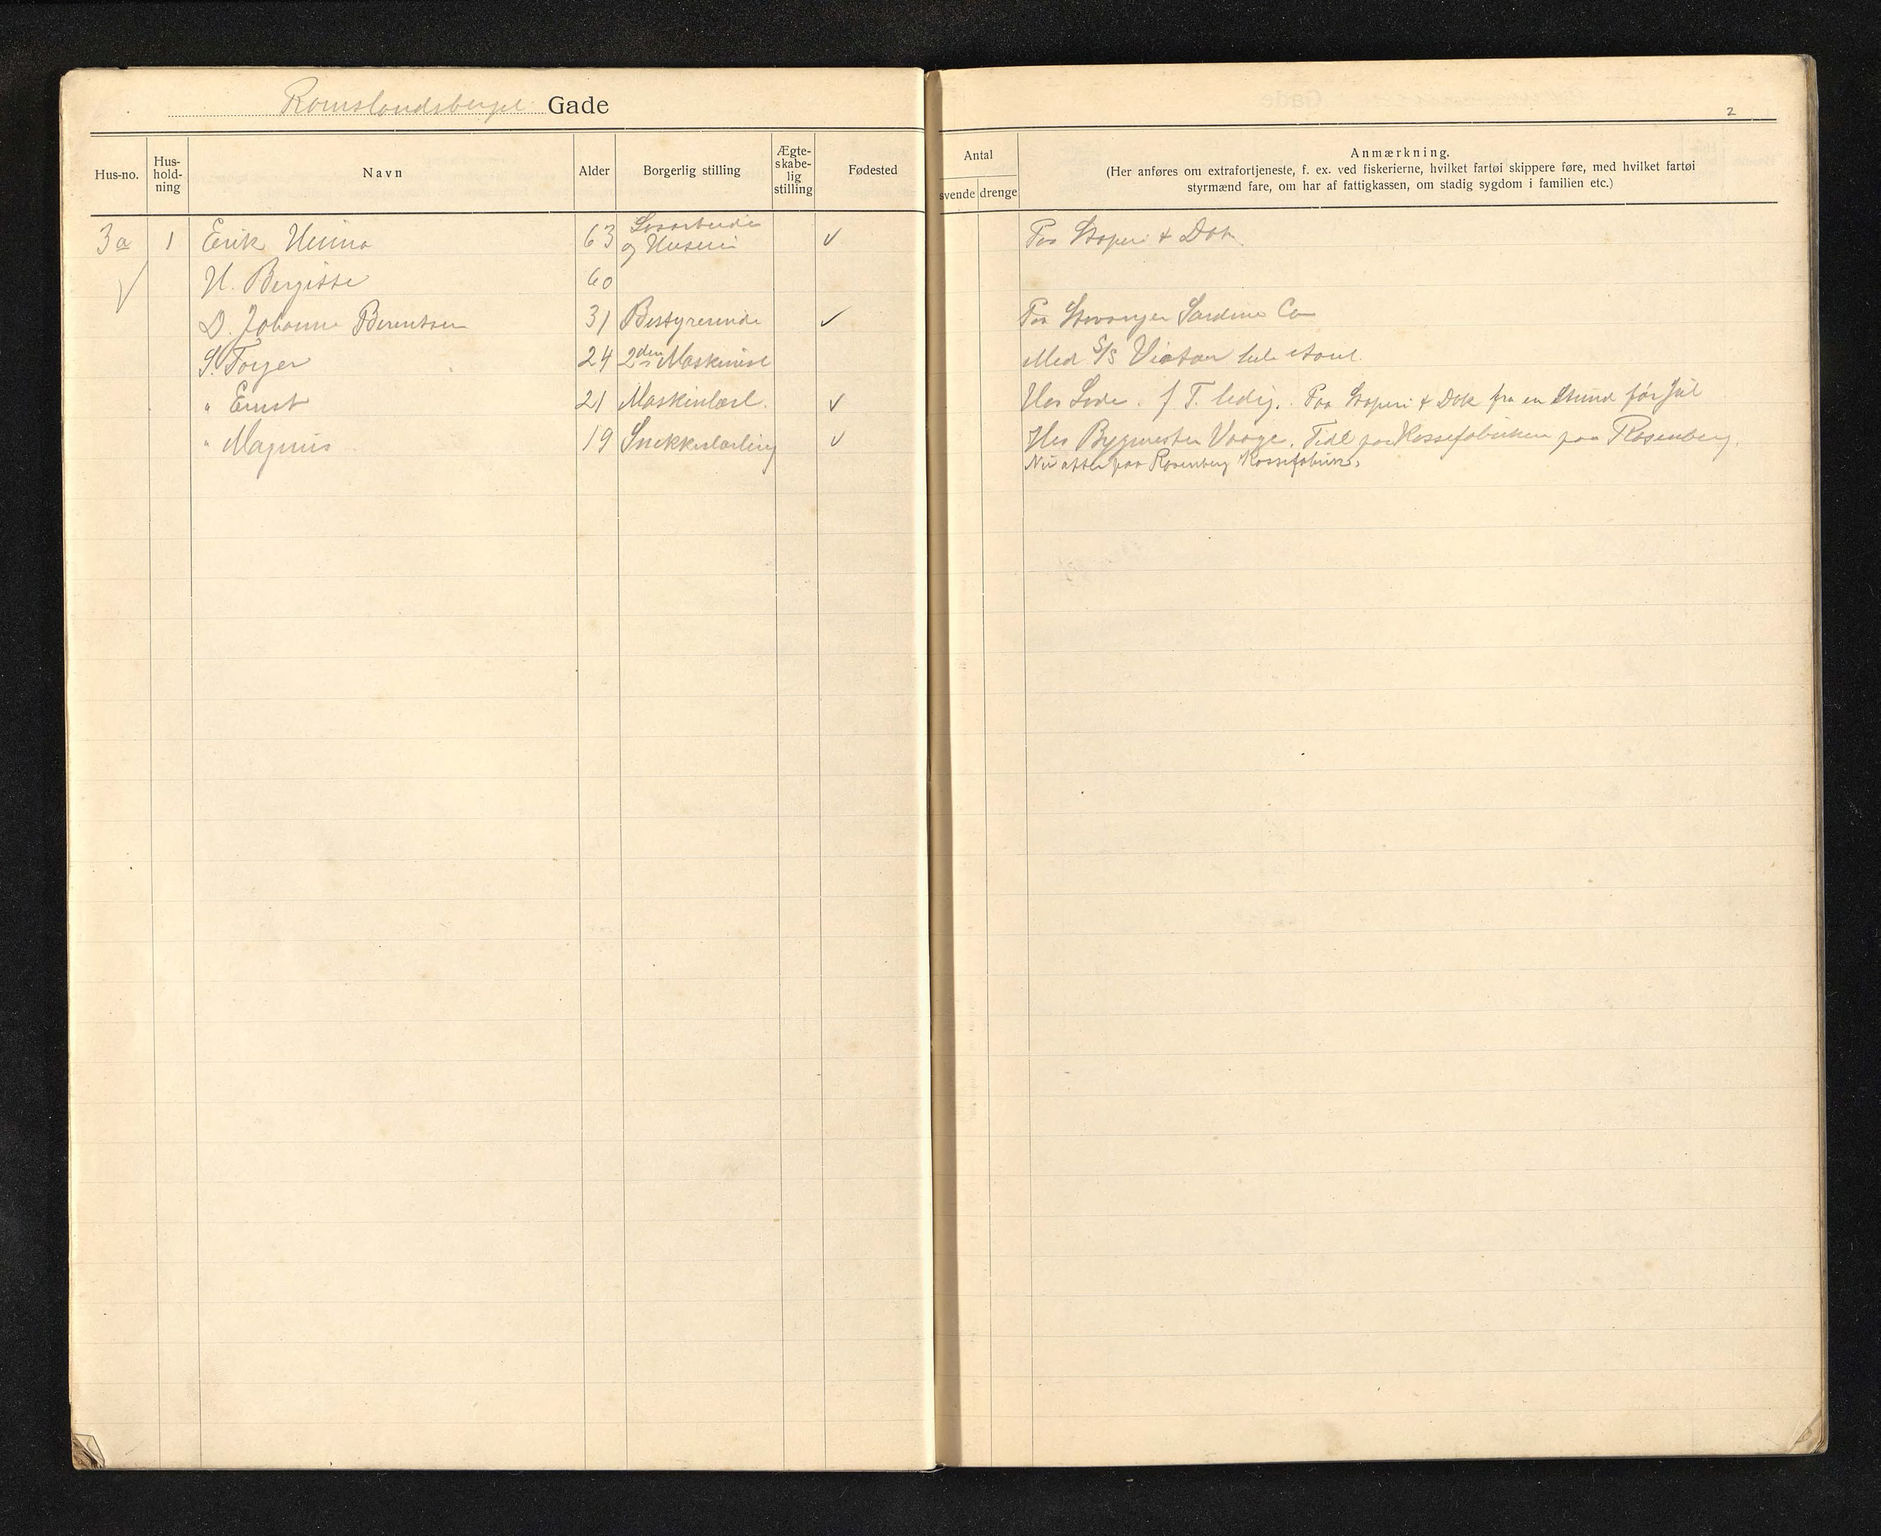 Romslandsberget Gade
2
Hus-no.
Hus-
hold-
ning
Navn
Alder
Borgerlig stilling
Ægte-
skabe-
lig
stilling
Fødested
Antal
svende drenge
Anmærkning.
(Her anføres om extrafortjeneste, f. ex. ved fiskerierne, hvilket fartøi skippere føre, med hvilket fartøi
styrmænd fare, om har af fattigkassen, om stadig sygdom i familien etc.)
3a 1 Erik 63 og Huseier ✓ Paa Støperi & Dok.
H. Bergitte 60
D. Johanne Berentsen 31 Bestyrerinde ✓ Paa Stavanger Sardine Co
S. Torger 24 2den Maskinist Med S/S hele aaret.
" Ernst 21 Maskinlærl. ✓ Hos f. T. ledig. Paa Støperi & Dok fra en Stund før Jul
" Magnus 19 Snekkerlærling ✓ Hos Bygmester Vaage. Tidl. paa Kassefabriken paa Rosenberg.
Nu atter paa Rosenberg Kassefabrik.